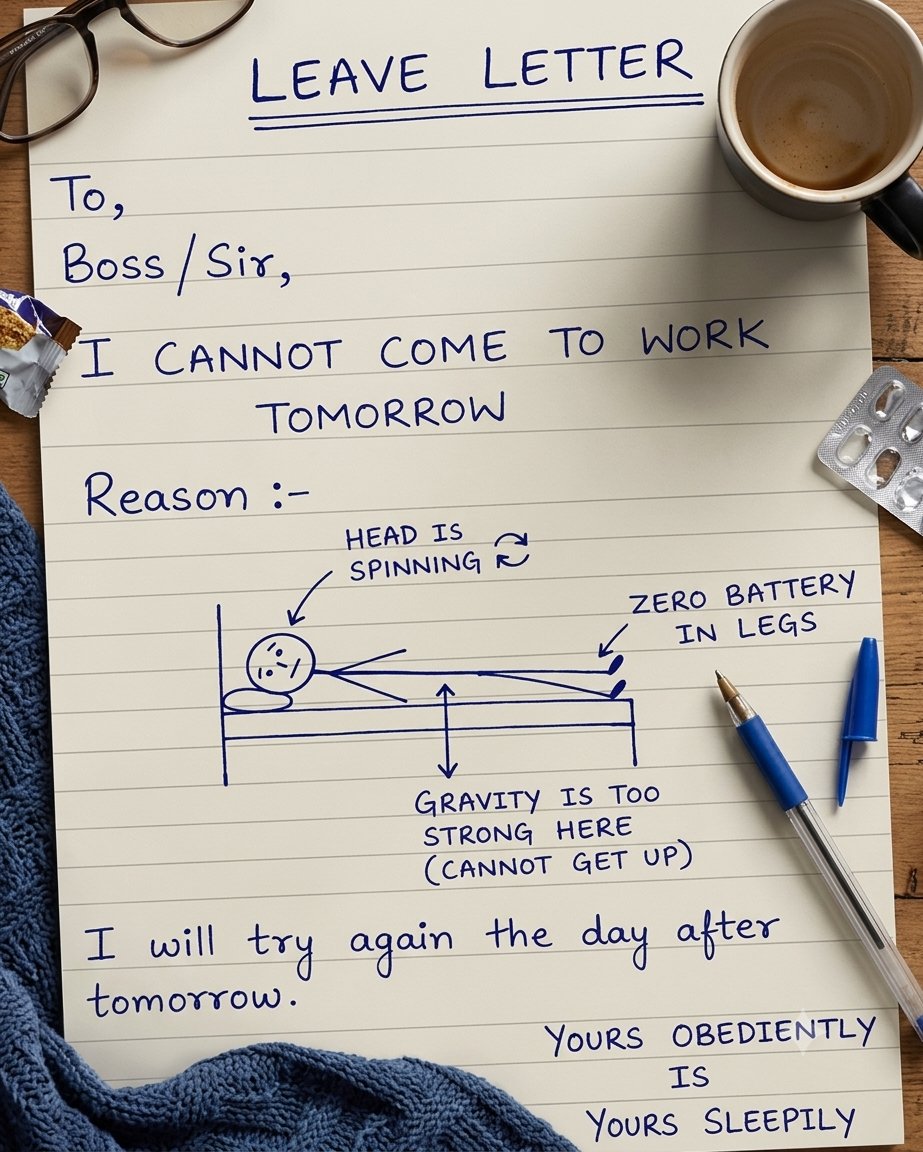 LEAVE LETTER
To,
Boss/Sir,
I CANNOT COME TO WORK
TOMORROW
Reason :-
HEAD IS
SPINNING
ZERO BATTERY
IN LEGS
GRAVITY IS TOO
STRONG HERE
(CANNOT GET UP)
I will try again the day after
tomorrow.
YOURS OBEDIENTLY
IS
YOURS SLEEPILY